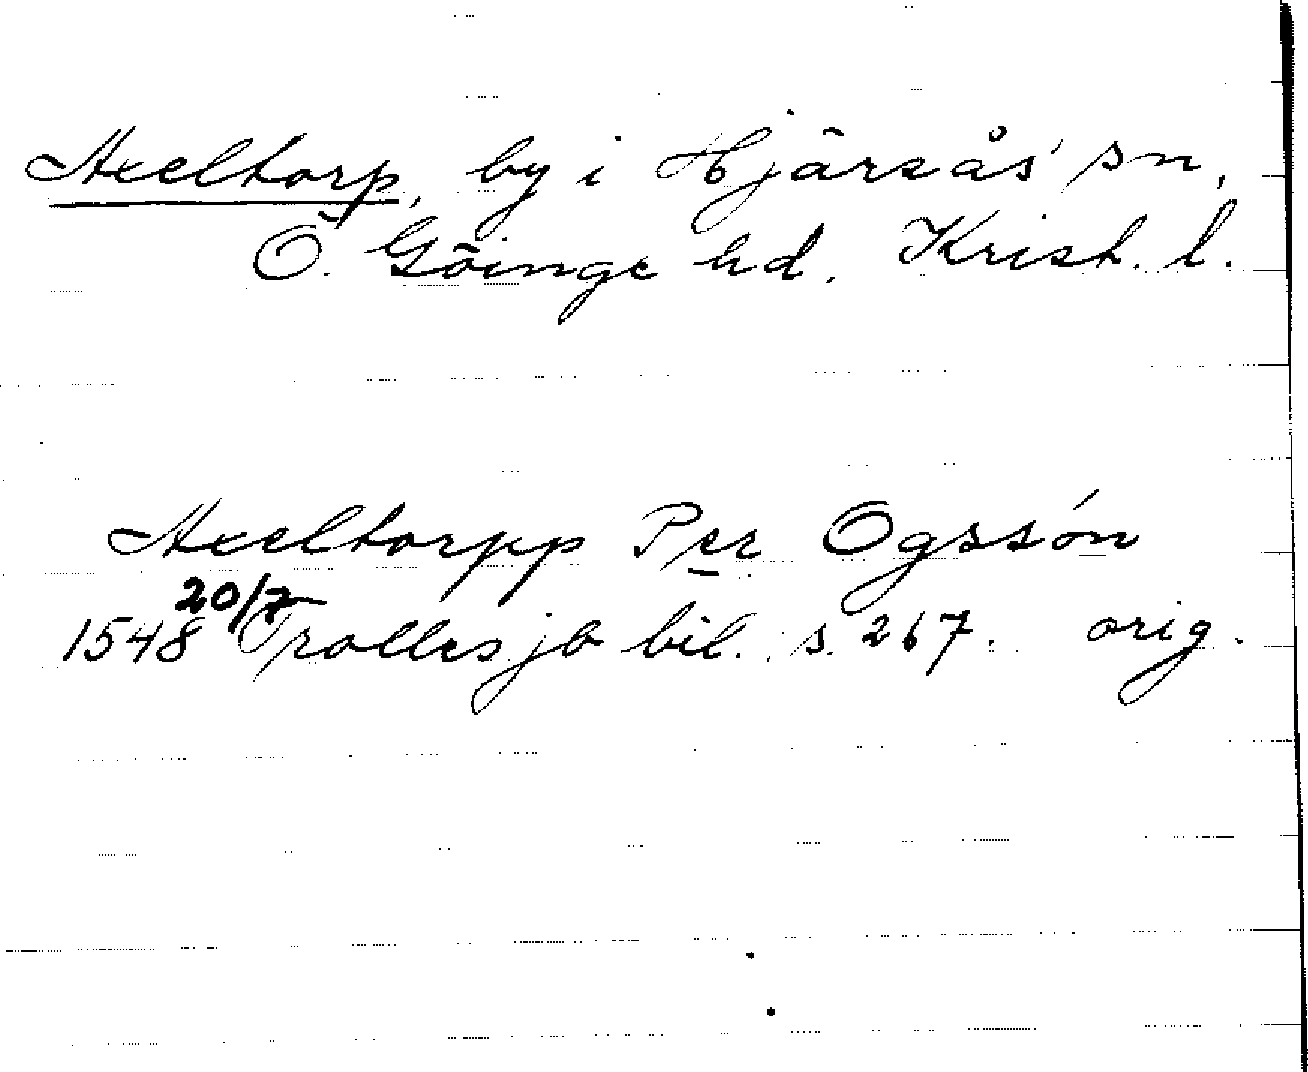 Axeltorp, by i Hjärsås sn,
Ö. Göinge hd. Krist. l.
Axeltorpp Per Ogssøn
1548 20/7 Trolles jb bil. s. 267. orig.